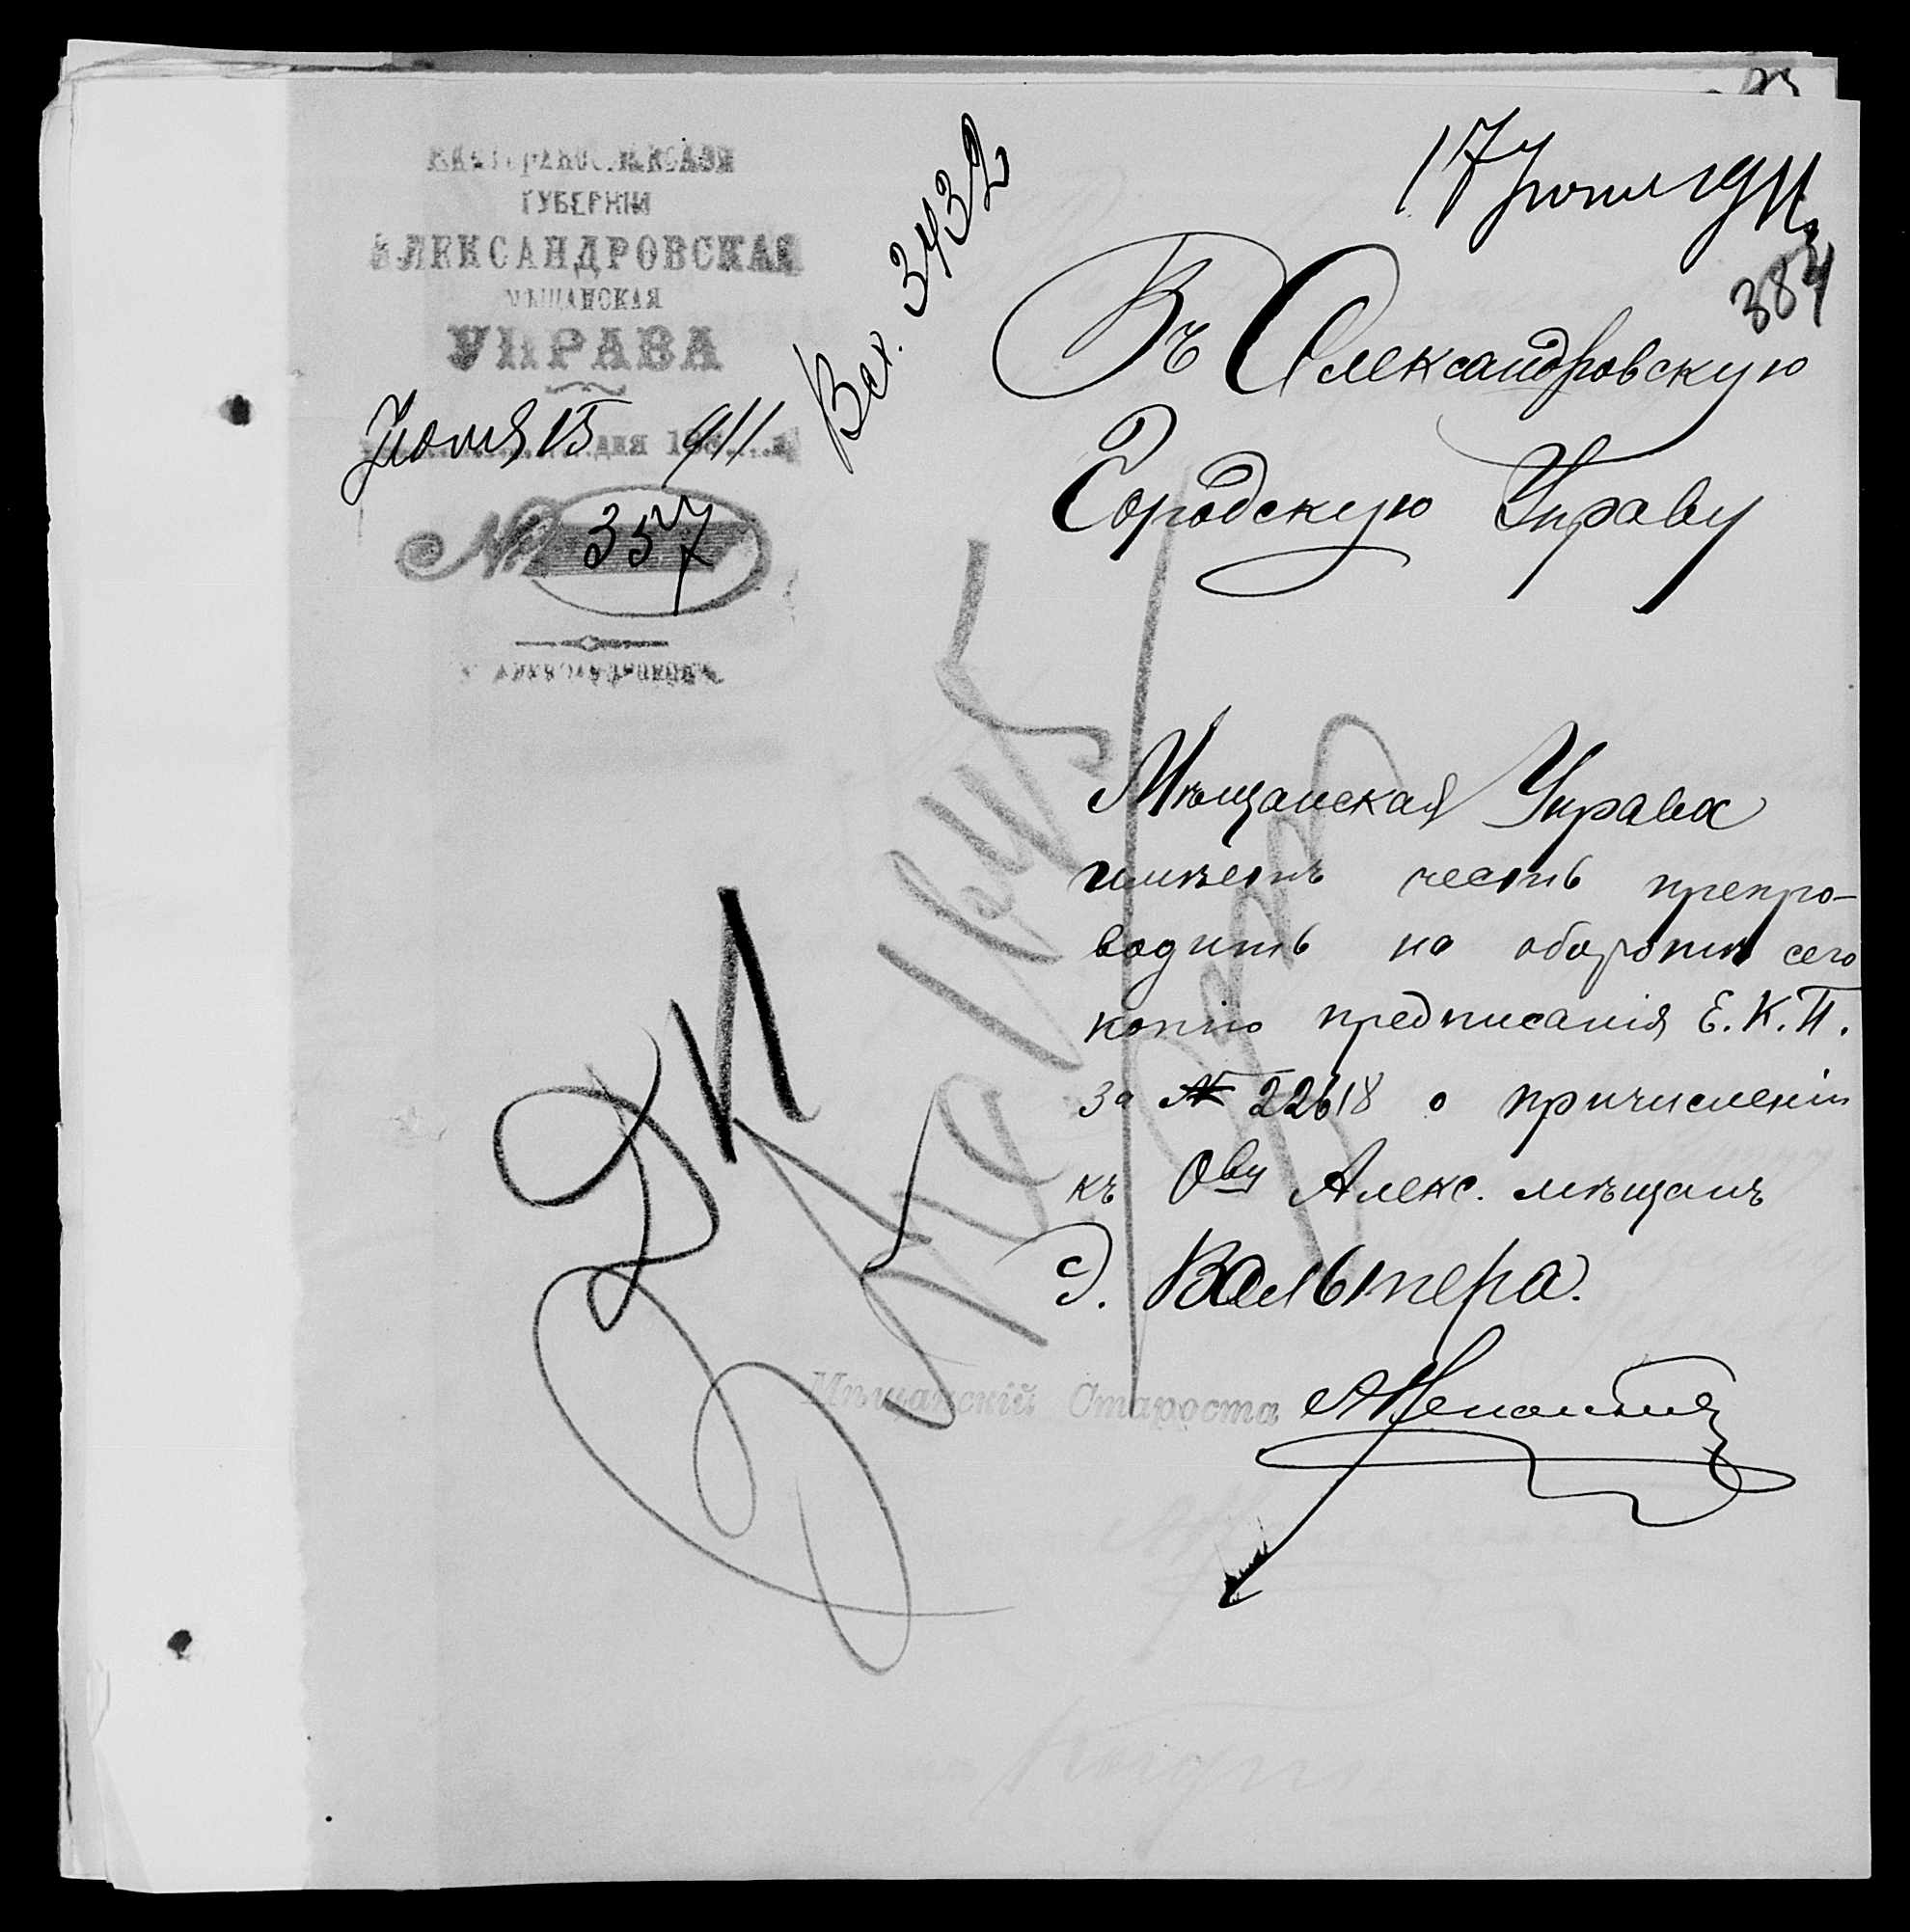 ЕКАТЕРИНОСЛАВСКОЙ
ГУБЕРНІИ
АЛЕКСАНДРОВСКАЯ
МѢЩАНСКАЯ
УПРАВА
Іюня 15 дня 1911 г.
№ 357
Г. АЛЕКСАНДРОВСКЪ
Вх. 3432
17 іюня 1911
384
Въ Александровскую
Городскую Управу
Мѣщанская Управа
имѣетъ честь препро-
водить на оборотѣ сего
копію предписанія Е. К. П.
за № 22618 о причисленіи
къ Ову Алекс. мѣщанъ
Э. Вальтера.
Мѣщанскій Староста